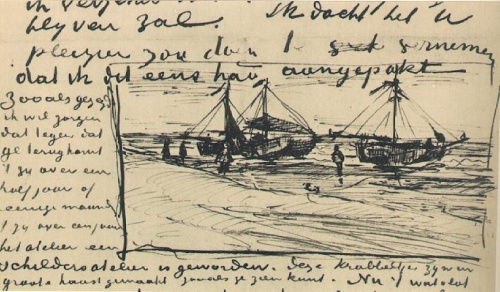 blyven zal. Ik dacht het U
plezier zou doen te vernemen
dat ik dit eens had aangepakt
Zooals gezegd
ik wil zorgen
dat tegen dat
ge terugkomt
't zy over een
half jaar of
eenige maanden
't zy over een jaar
het atelier een
schildersatelier is geworden. Deze krabbeltjes zyn in
groote haast gemaakt zooals ge zien kunt. Nu 't wat vlot